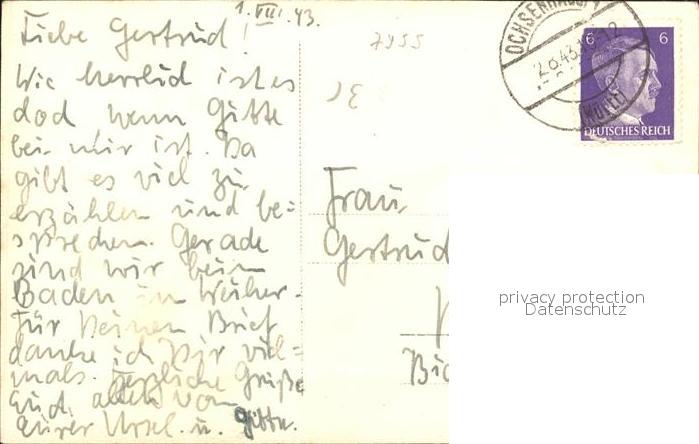 1. VIII. 43.
Liebe Gertrud!
Wie herrlich ist es
doch wenn Gitte
bei mir ist. Da
gibt es viel zu
erzählen und be=
sprechen. Gerade
sind wir beim
Baden im Weiher.
Für Deinen Brief
danke ich Dir viel=
mals. Herzliche Grüße
Euch allen von
Eurer Ursel. u. Gitte.
7955
OCHSENHAUSEN
2.8.43
6 6
DEUTSCHES REICH
Frau
Gertrud
privacy protection
Datenschutz